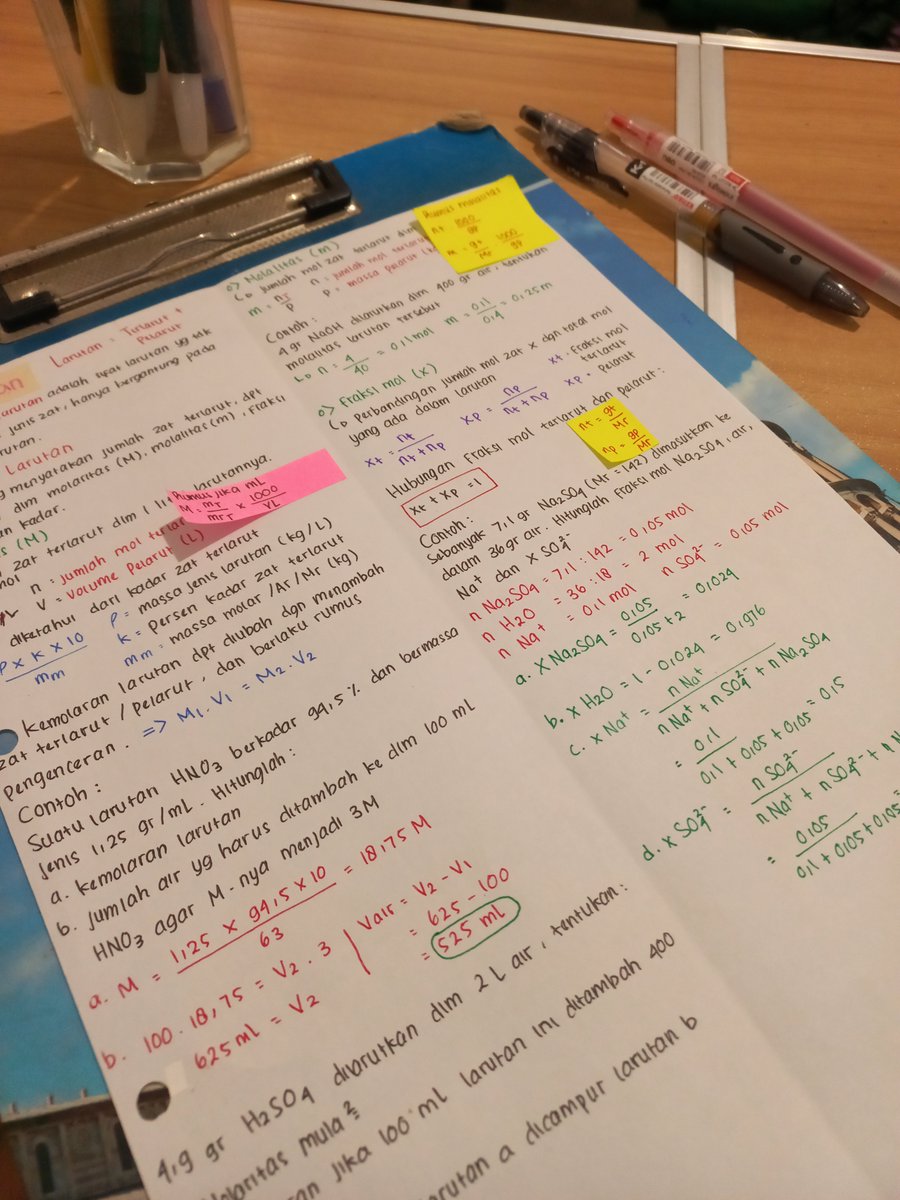 an
Larutan : Terlarut +
Pelarut
larutan adalah sifat larutan yg tdk
jenis zat, hanya bergantung pada
Larutan
menyatakan jumlah zat terlarut, dpt
dlm molaritas (M), molalitas (m), fraksi
kadar.
(M)
zat terlarut dlm 1 larutannya.
n = jumlah mol
V = Volume Pelarut (L)
Rumus jika mL
M = mT/mrT × 1000/VL
diketahui dari kadar zat terlarut
ρ × k × 10 / mm
ρ = massa jenis larutan (kg/L)
k = persen kadar zat terlarut
mm = massa molar /Ar/Mr (kg)
Kemolaran larutan dpt diubah dgn menambah
zat terlarut / pelarut, dan berlaku rumus
pengenceran. => M1.V1 = M2.V2
Contoh :
Suatu larutan HNO3 berkadar 94,5% dan bermassa
jenis 1,25 gr/mL. Hitunglah :
a. kemolaran larutan
b. jumlah air yg harus ditambah ke dlm 100 mL
HNO3 agar M-nya menjadi 3M
a. M = 1,25 × 94,5 × 10 / 63 = 18,75 M
b. 100 . 18,75 = V2 . 3
625 ml = V2
Vair = V2 - V1
= 625 - 100
= 525 ml
4,9 gr H2SO4 dilarutkan dlm 2 L air, tentukan :
mula²
jika 100 ml larutan ini ditambah 400
a dicampur larutan b
o) Molalitas (m)
jumlah mol zat terlarut dlm
m = nT/P
n = jumlah mol
P = massa pelarut
Rumus molalitas
nt 1000/gp
m = gt/Mr 1000/gp
Contoh :
4 gr NaOH dilarutkan dlm 400 gr air, tentukan
molalitas larutan tersebut
n = 4/40 = 0,1 mol m = 0,1/0,4 = 0,25 m
o) Fraksi mol (X)
Perbandingan jumlah mol zat X dgn total mol
yang ada dalam larutan
Xt = nt/nt+np
Xp = np/nt+np
Xt = Fraksi mol terlarut
Xp = Pelarut
Hubungan fraksi mol terlarut dan pelarut :
Xt + Xp = 1
nt = gt/Mr
np = gp/Mr
Contoh :
Sebanyak 7,1 gr Na2SO4 (Mr = 142) dimasukkan ke
dalam 36 gr air. Hitunglah fraksi mol Na2SO4, air,
Na+ dan X SO4²-
n Na2SO4 = 7,1 : 142 = 0,05 mol
n H2O = 36 : 18 = 2 mol
n Na+ = 0,1 mol n SO4²- = 0,05 mol
a. X Na2SO4 = 0,05 / 0,05 + 2 = 0,024
b. X H2O = 1 - 0,024 = 0,976
c. X Na+ = n Na+ / n Na+ + n SO4²- + n Na2SO4
= 0,1 / 0,1 + 0,05 + 0,05 = 0,5
d. X SO4²- = n SO4²- / n Na+ + n SO4²- +
= 0,05 / 0,1 + 0,05 + 0,05 =